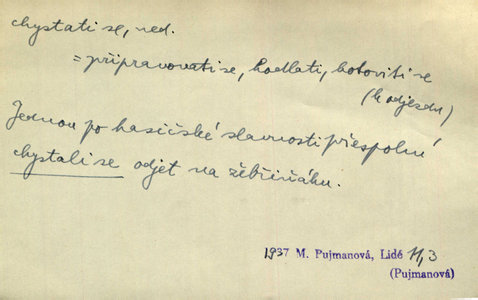 chystati se, ned.
= připravovati se, hodlati, hotoviti se
(k odjezdu)
Jednou po hasičské slavnosti přespolní
chystali se odjet na žebřiňáku.
1937 M. Pujmanová, Lidé 11,3
(Pujmanová)